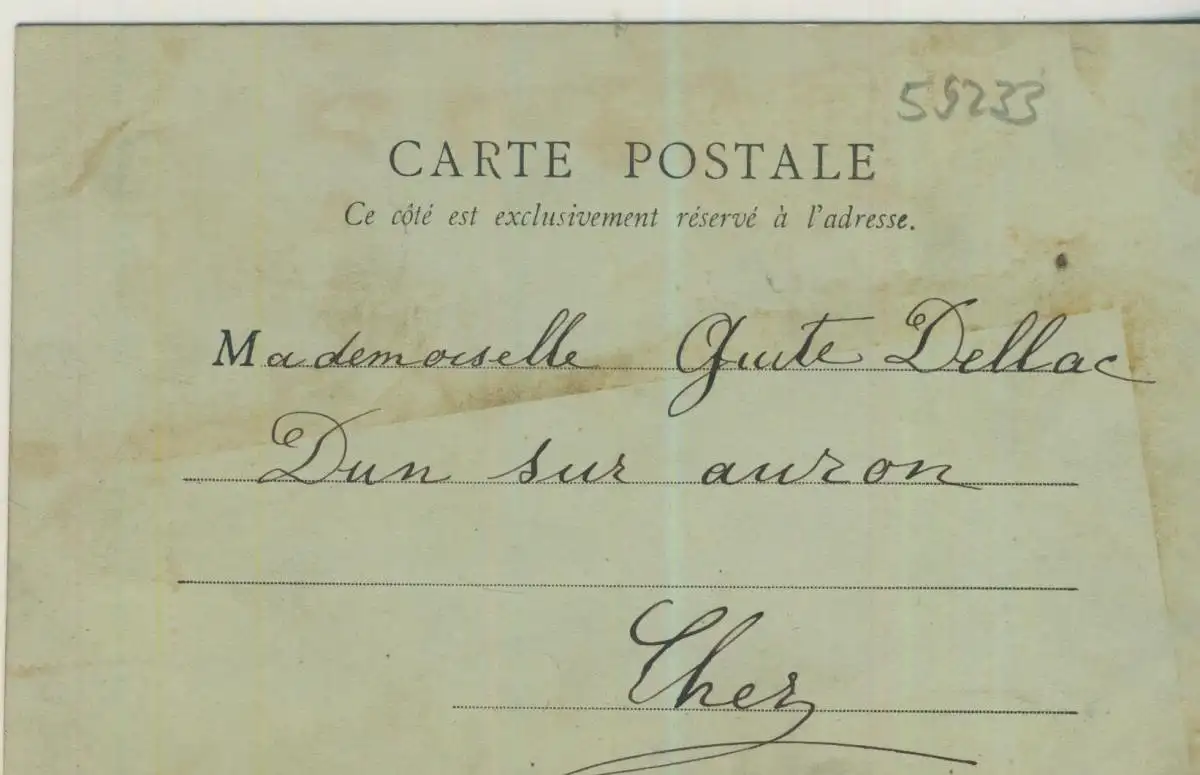 59233
CARTE POSTALE
Ce côté est exclusivement réservé à l'adresse.
Mademoiselle Guite Dellac
Dun sur auron
Cher